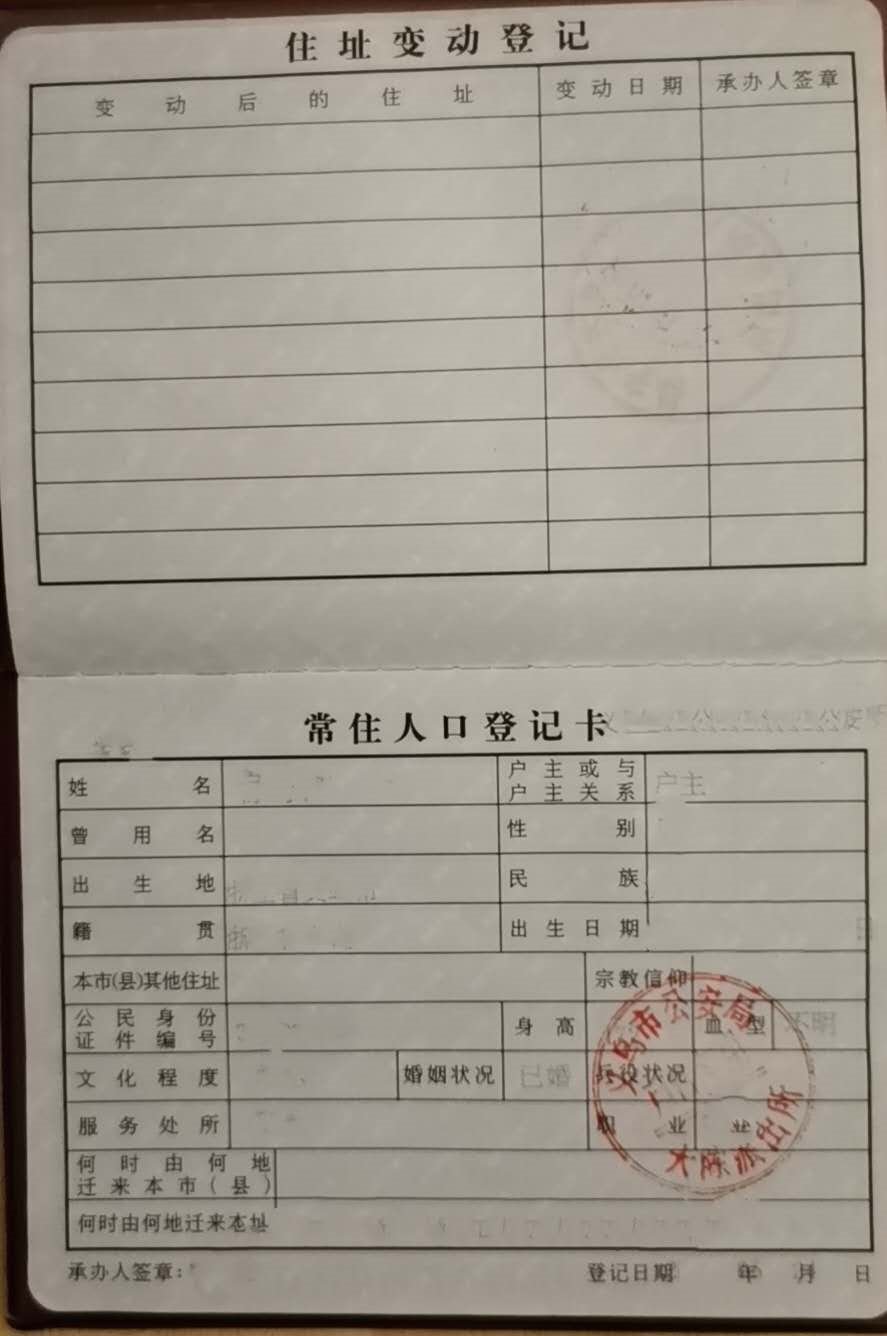 住址变动登记
变动后的住址 变动日期 承办人签章
常住人口登记卡
姓名 户主或与户主关系 户主
曾用名 性别
出生地 民族
籍贯 出生日期 日
本市(县)其他住址 宗教信仰
公民身份证件编号 身高 血型 不明
文化程度 婚姻状况 已婚 兵役状况
服务处所 职业
何时由何地迁来本市(县)
何时由何地迁来本址
承办人签章: 登记日期 年 月 日
义乌市公安局
大陈派出所